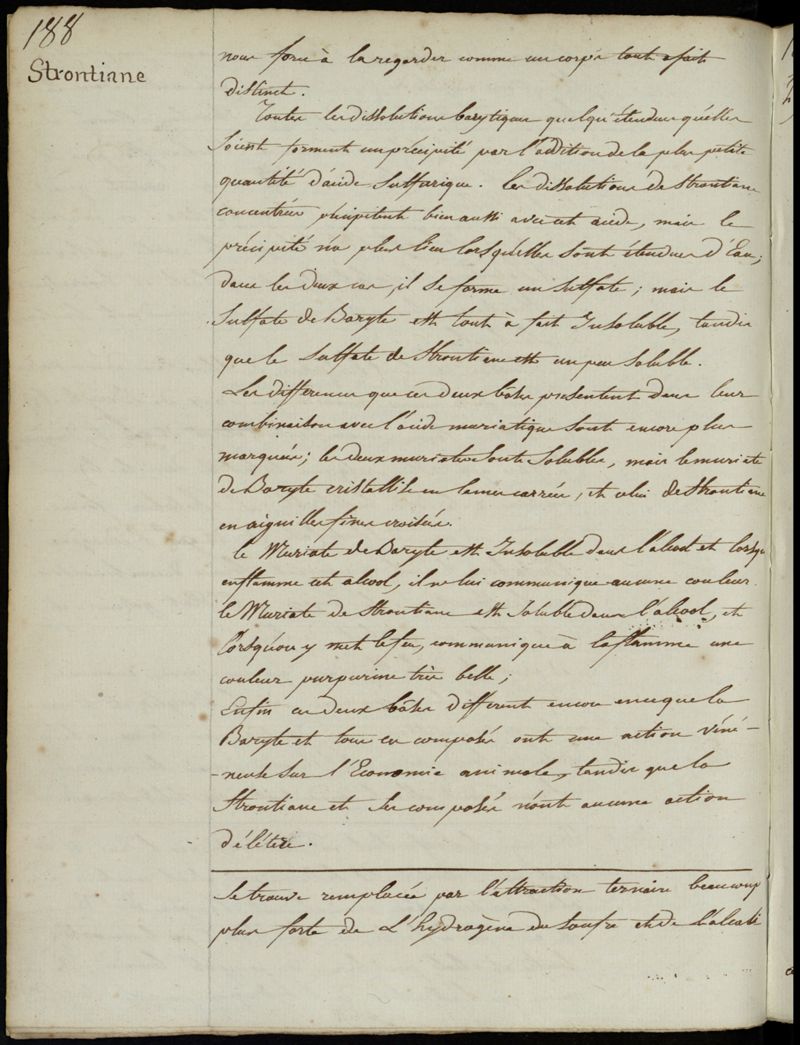 188
Strontiane
nous force à la regarder comme un corps tout a fait
distinct.
Toutes les dissolutions barytiques quelqu'étendues qu'elles
soient forment un précipité par l'addition de la plus petite
quantité d'acide sulfurique. les dissolutions de Strontiane
concentrées précipitent bien aussi avec cet acide, mais le
précipité n'a plus lieu lorsqu'elles sont étendues d'Eau;
dans les deux cas, il se forme un sulfate; mais le
Sulfate de Baryte est tout à fait Insoluble, tandis
que le sulfate de Strontiane est un peu soluble.
Les differences que ces deux bâses presentent dans leur
combinaison avec l'acide muriatique sont encore plus
marquées; les deux muriates sont solubles, mais le muriate
de Baryte cristallise en lames carrées, et celui de Strontiane
en aiguilles fines croisées.
le Muriate de Baryte est Insoluble dans l'alcool et lorsqu
enflamme cet alcool, il ne lui communique aucune couleur.
le Muriate de Strontiane est soluble dans l'alcool, et
lorsqu'on y met le feu, communique à la flamme une
couleur purpurine très belle;
Enfin ces deux bâses different encore en ce que la
Baryte et tous ses composés ont une action véné-
-neuse sur l'Economie animale, tandis que la
Strontiane et ses composés n'ont aucune action
délétère.
se trouve remplacée par l'attraction ternaire beaucoup
plus forte de L'hydrogène du soufre et de l'alcali